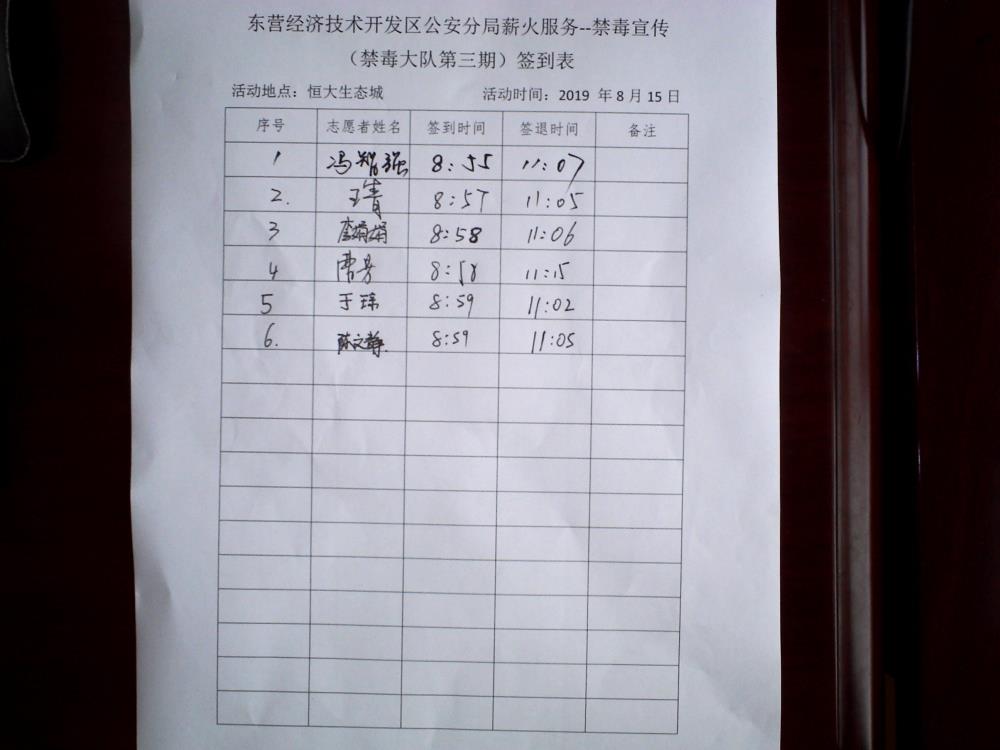 东营经济技术开发区公安分局薪火服务--禁毒宣传
（禁毒大队第三期）签到表
活动地点：恒大生态城 活动时间：2019 年 8 月 15 日
序号 志愿者姓名 签到时间 签退时间 备注
1 冯智强 8:55 11:07
2. 王青 8:57 11:05
3 李娟娟 8:58 11:06
4 曹芳 8:58 11:15
5 于玮 8:59 11:02
6. 陈文静 8:59 11:05